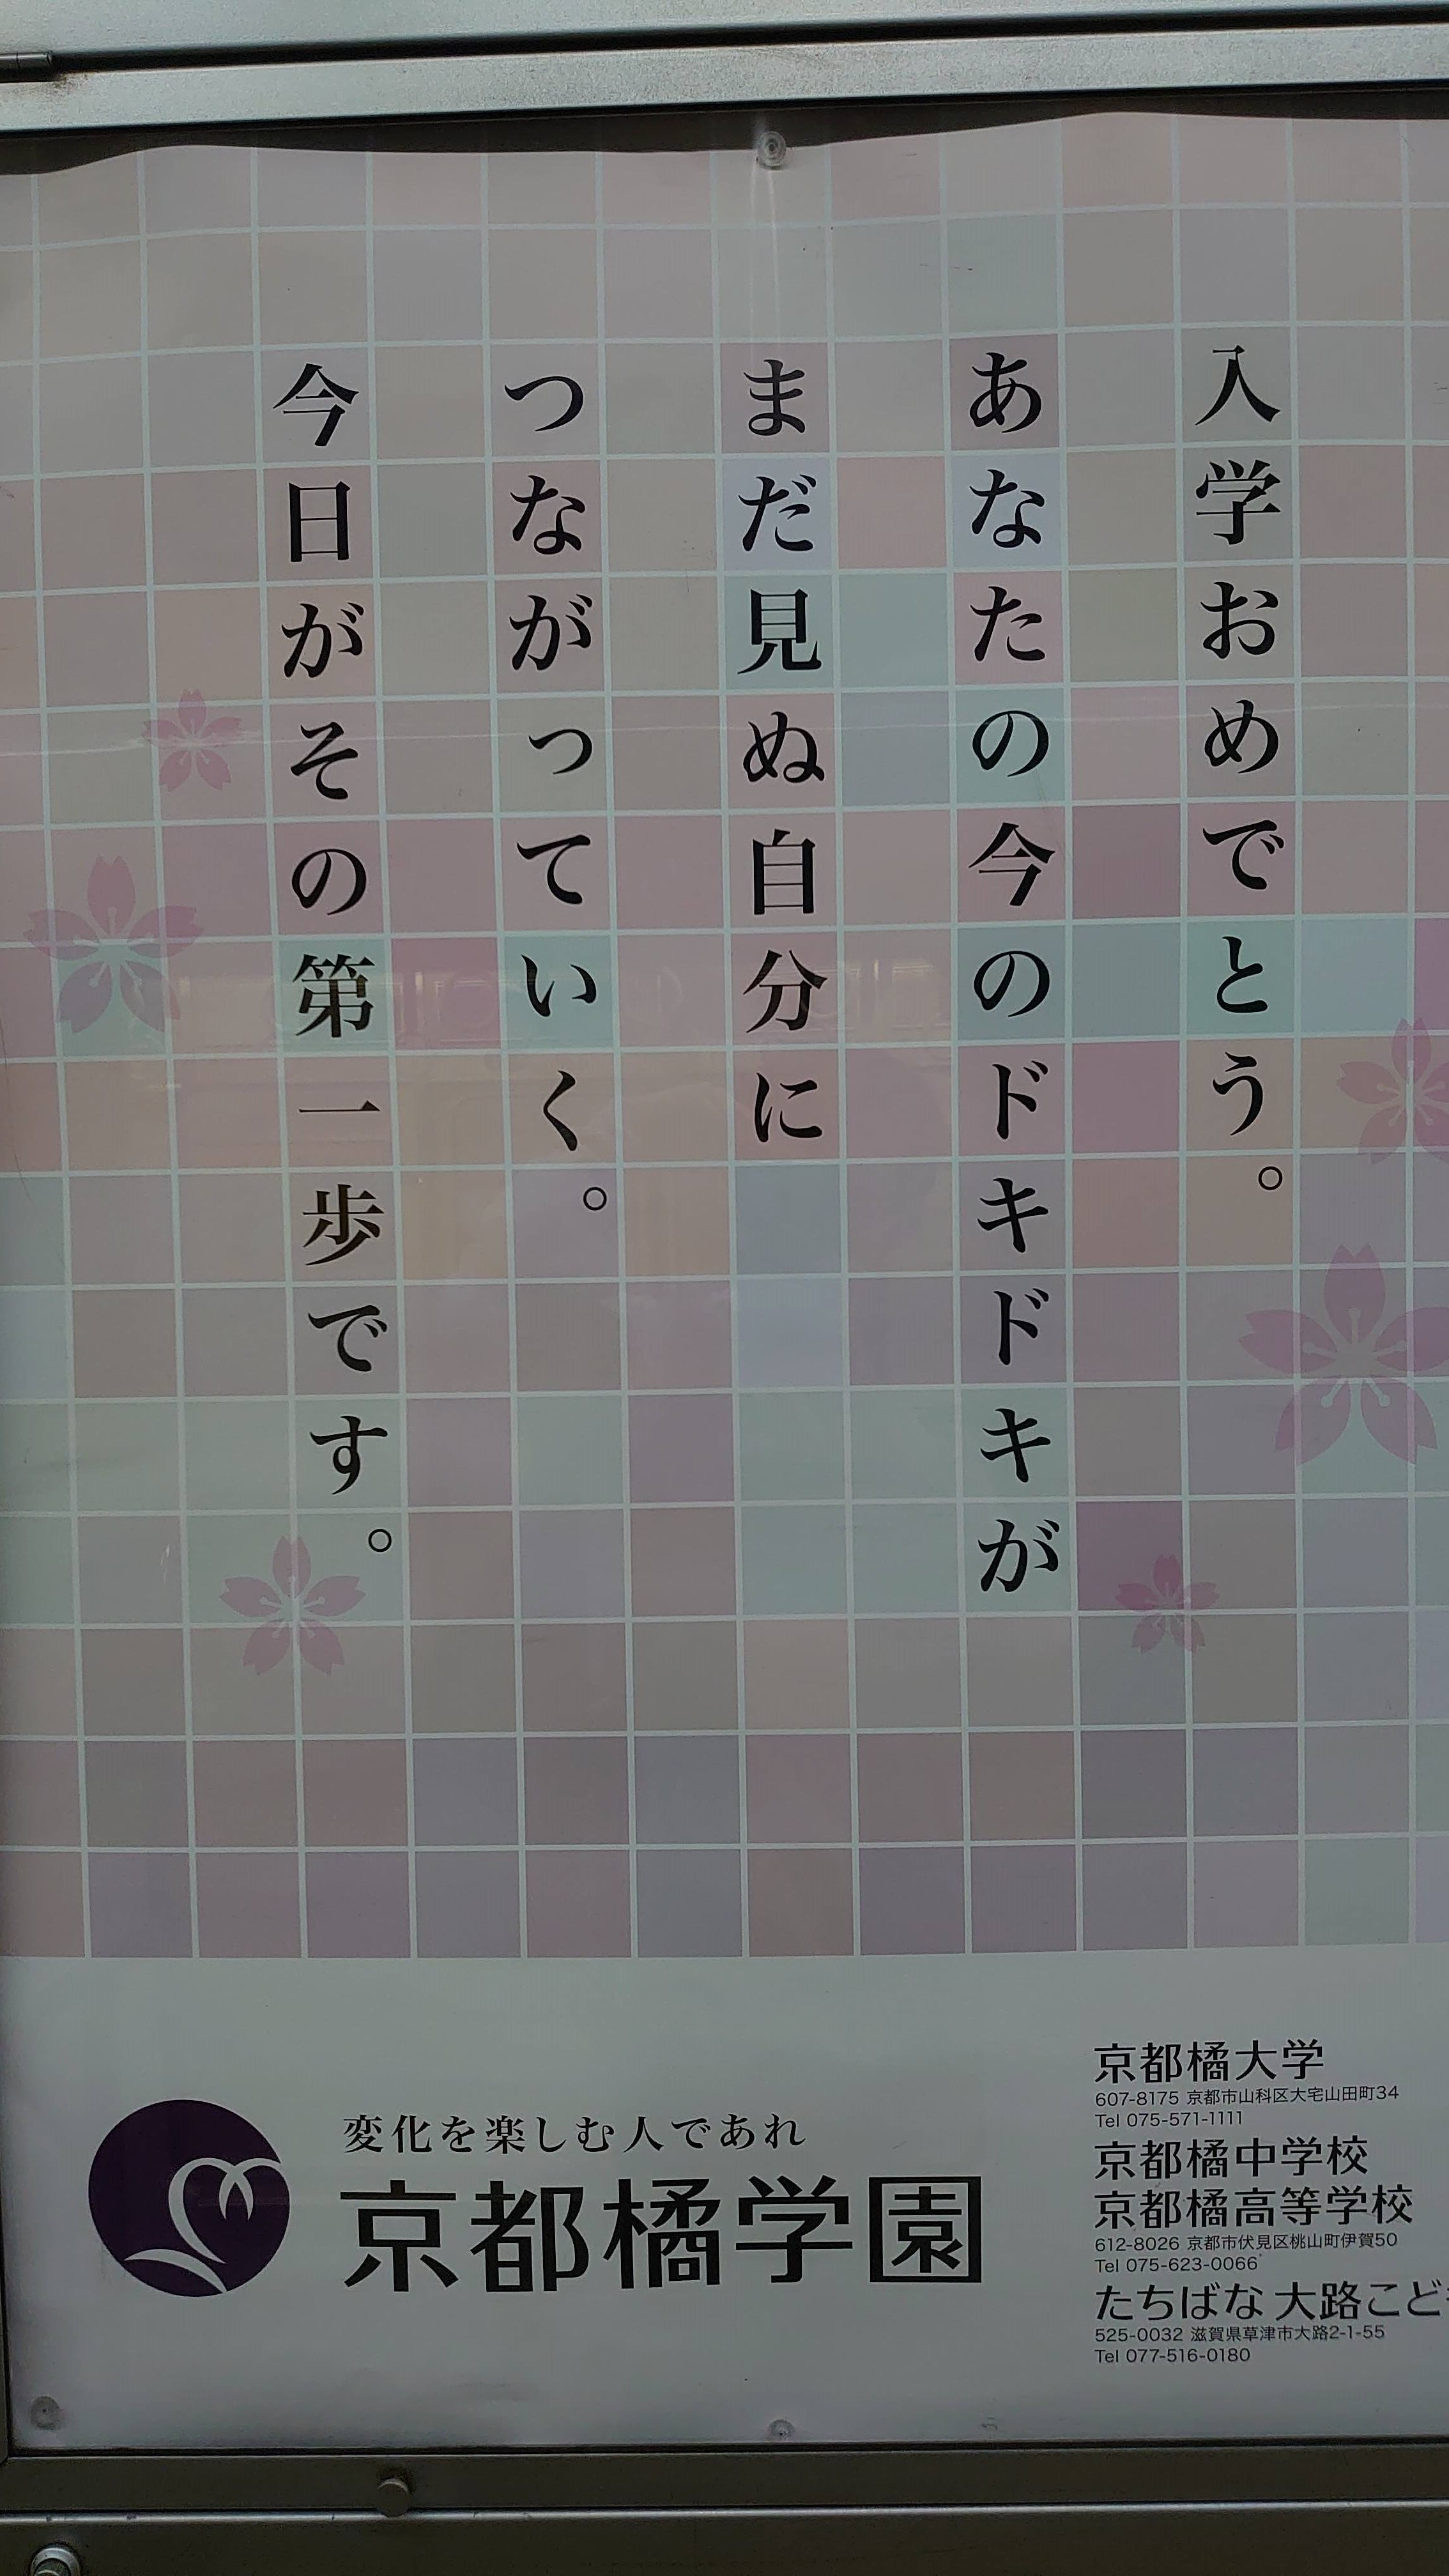 入学おめでとう。
あなたの今のドキドキが
まだ見ぬ自分に
つながっていく。
今日がその第一歩です。
変化を楽しむ人であれ
京都橘学園
京都橘大学
607-8175 京都市山科区大宅山田町34
Tel 075-571-1111
京都橘中学校
京都橘高等学校
612-8026 京都市伏見区桃山町伊賀50
Tel 075-623-0066
たちばな 大路こど
525-0032 滋賀県草津市大路2-1-55
Tel 077-516-0180